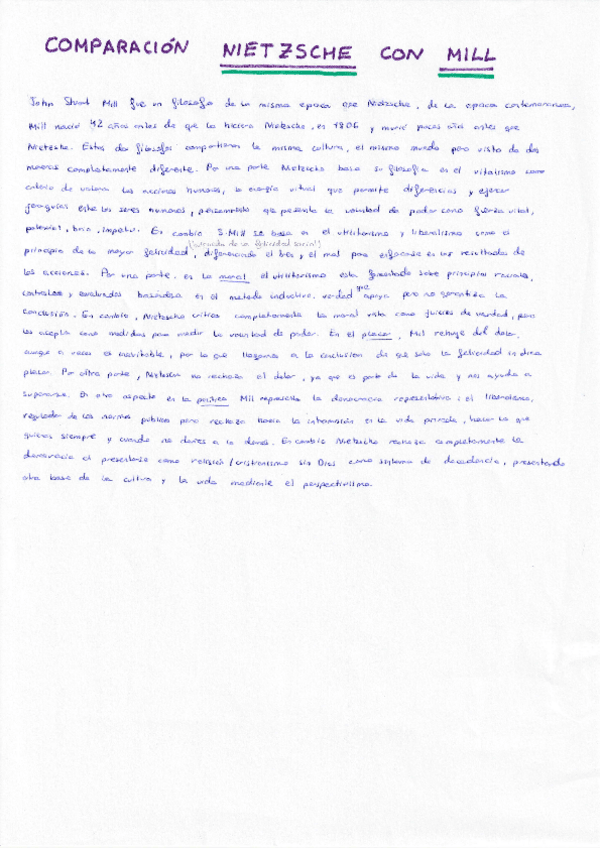 COMPARACIÓN NIETZSCHE CON MILL
John Stuart Mill fue un filósofo de la misma época que Nietzsche, de la época contemporánea,
Mill nació 42 años antes de que lo hiciera Nietzsche, en 1806 y murió pocos años antes que
Nietzsche. Estos dos filósofos compartieron la misma cultura, el mismo mundo pero visto de dos
maneras completamente diferente. Por una parte Nietzsche basa su filosofía en el vitalismo como
criterio de valorar las acciones humanas, la energía vital que permite diferencias y ejercer
jerarquías entre los seres humanos, que presenta la voluntad de poder como fuerza vital,
potencia, brio, ímpetu. En cambio S.Mill se basa en el utilitarismo y liberalismo como el
(búsqueda de la felicidad social)
principio de la mayor felicidad, diferenciando el bien y el mal para enfocarse en los resultados de
las acciones. Por una parte, en la moral el utilitarismo esta sobre principios racionales,
y basándose en el método inductivo, verdad que apoya pero no garantiza la
conclusión. En cambio, Nietzsche critica completamente la moral vista como juicios de verdad, pero
los acepta como medidas para medir la voluntad de poder. En el placer, Mill rehuye del dolor,
aunque a veces es inevitable, por lo que llegamos a la conclusión de que solo la felicidad
placer. Por otra parte, Nietzsche no rechaza el dolor, ya que es parte de la vida y nos ayuda a
superarse. En otro aspecto en la política Mill la democracia representativa i el liberalismo,
regulador de las normas publicas pero rechaza hacia la intromisión en la vida privada, hacer lo que
quieras siempre y cuando no dañes a lo demás. En cambio Nietzsche rechaza completamente la
democracia al presentarse como religión/cristianismo sin Dios como sistema de decadencia, presentando
otra base de la cultura y la vida mediante el perspectivismo.